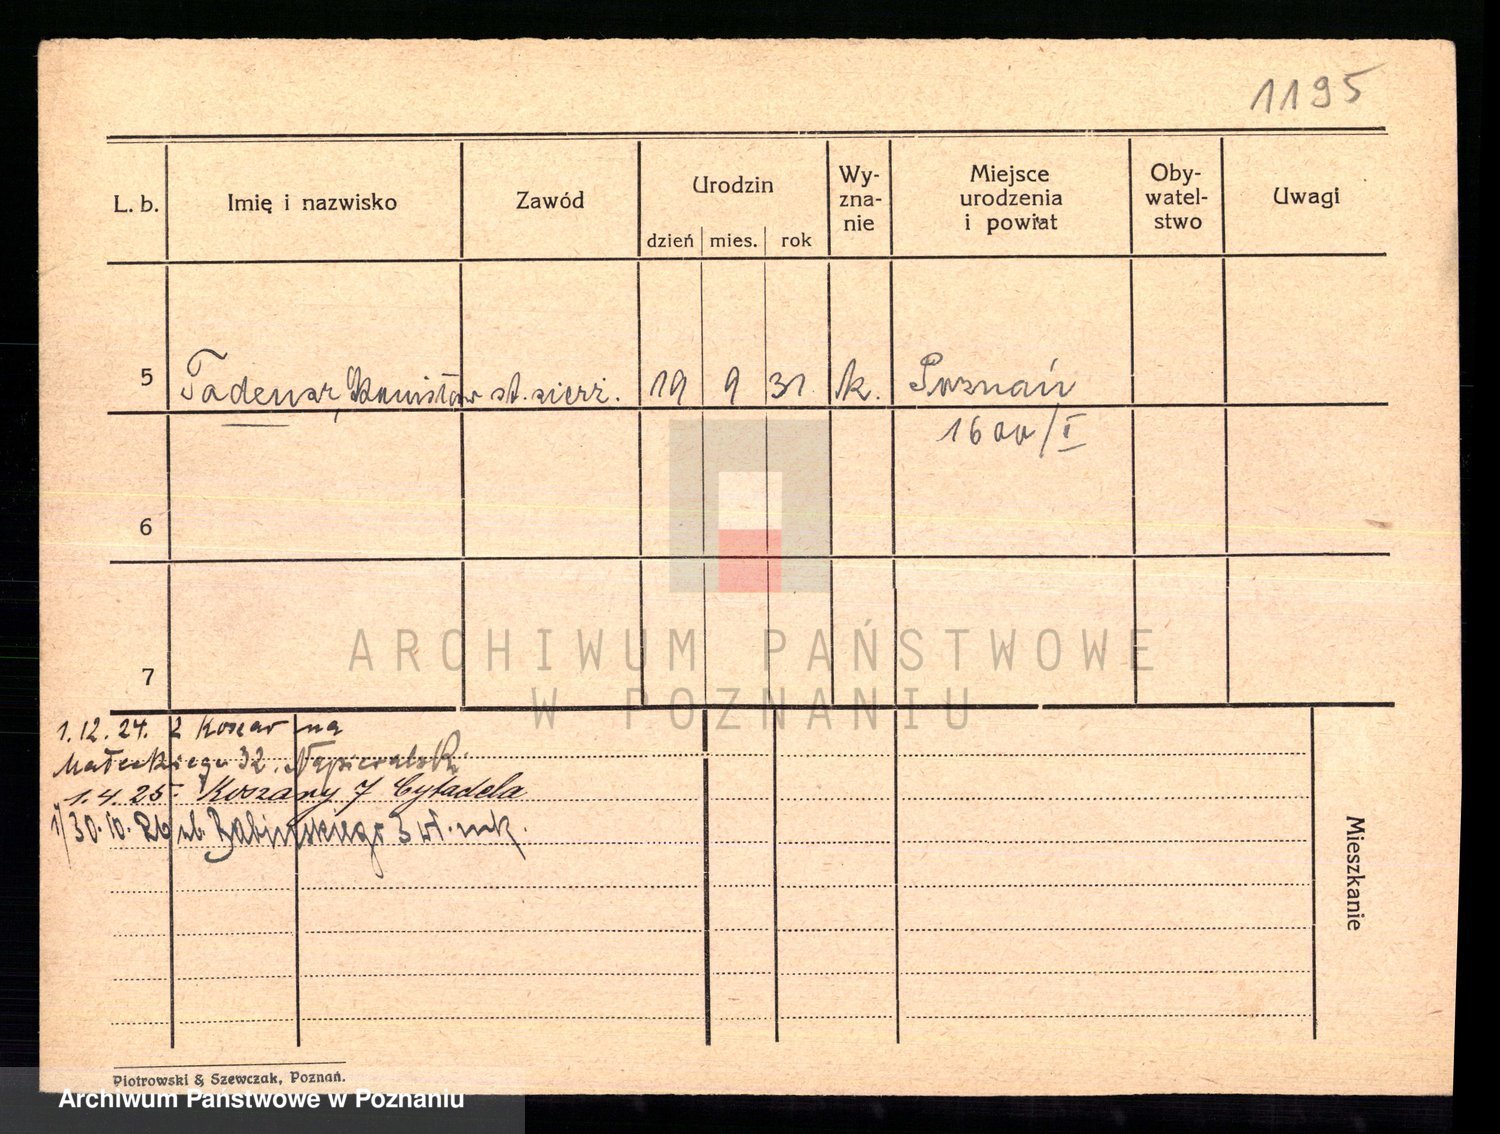 1195
L. b. Imię i nazwisko Zawód Urodzin Wy-zna-nie Miejsce urodzenia i powiat Oby-watel-stwo Uwagi
dzień mies. rok
5 Tadeusz, Stanisław st. sierż. 19 9 31. k. Poznań
1600/I
6
7
ARCHIWUM PAŃSTWOWE
W POZNANIU
1.12.24. z Koszar na
Małeckiego 32.
1.4.25. Koszary 7 Cytadela
1/30.10.26 Babińskiego 3
Mieszkanie
Piotrowski & Szewczak, Poznań.
Archiwum Państwowe w Poznaniu